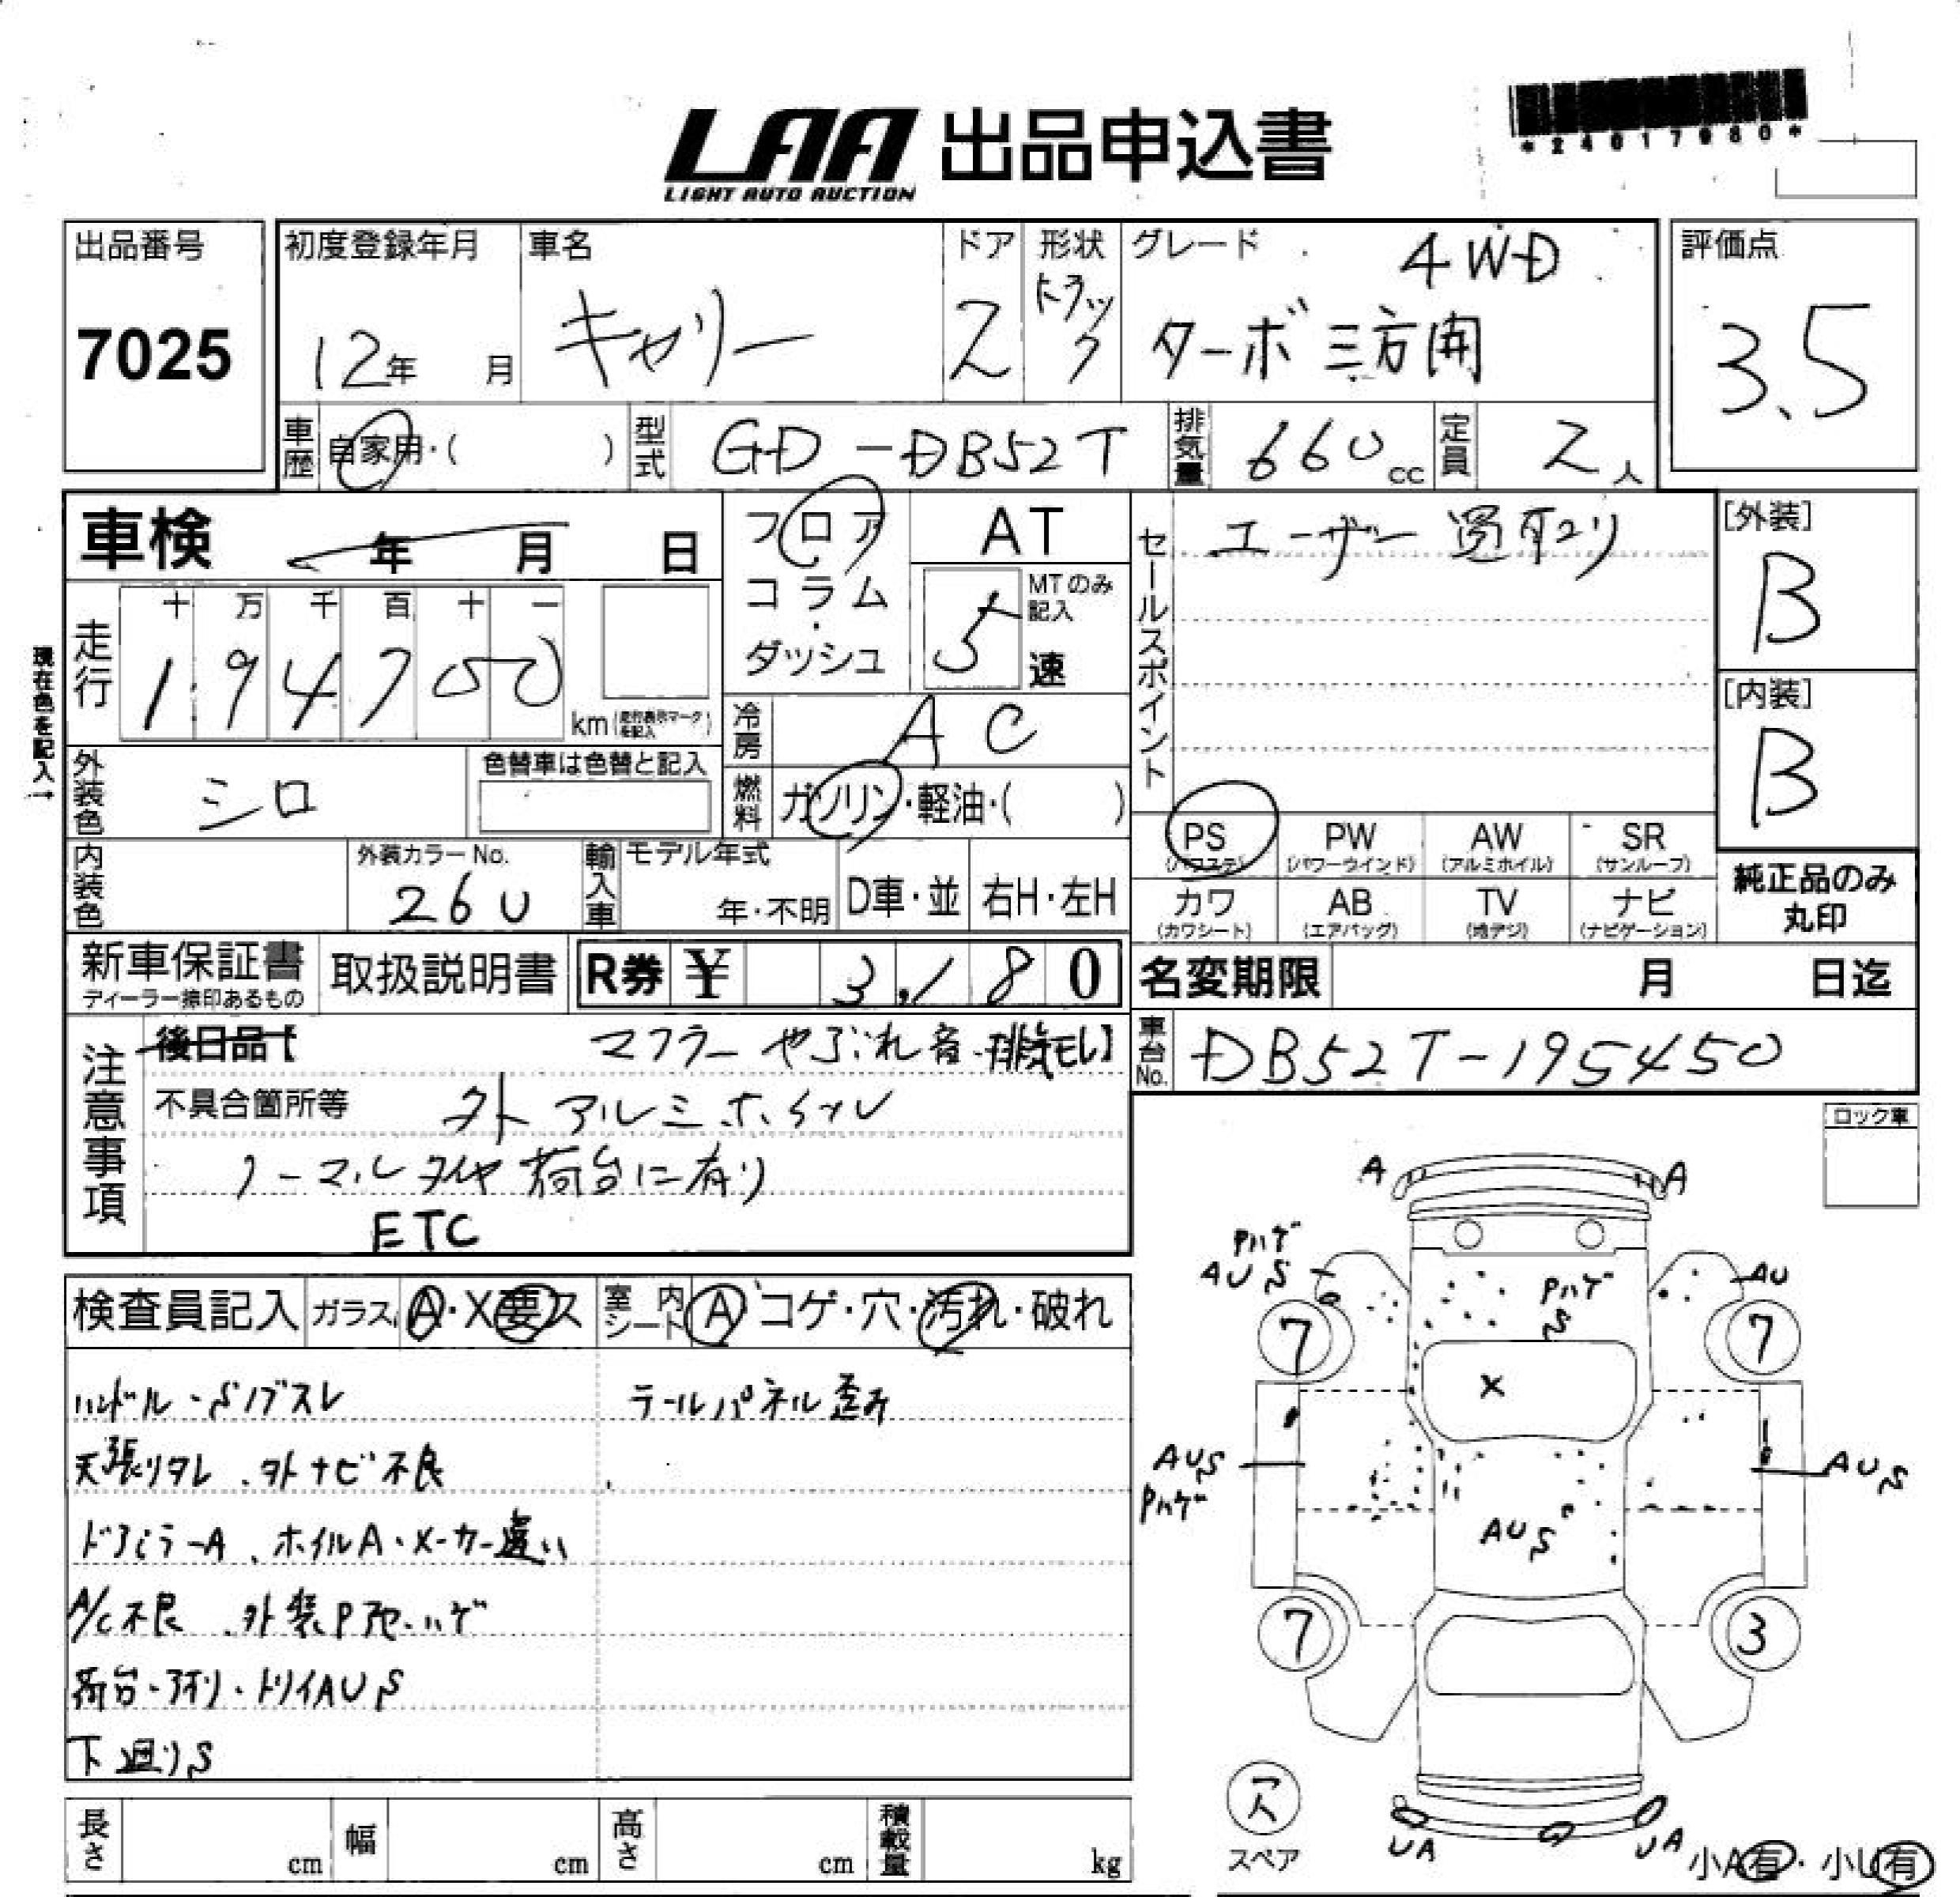 *24017980*
LAA 出品申込書
LIGHT AUTO AUCTION
出品番号
7025
初度登録年月
12年 月
車名
キャリー
ドア
2
形状
トラック
グレード
4WD
ターボ 三方開
評価点
3.5
車歴
自家用・( )
型式
GD-DB52T
排気量
660cc
定員
2人
車検 年 月 日
走行
十 万 千 百 十 一
194700
km(走行表示マークを記入)
現在色を記入→
フロア
コラム
・
ダッシュ
AT
MTのみ記入
5速
セールスポイント
ユーザー買取り
[外装]
B
[内装]
B
冷房
AC
燃料
ガソリン・軽油・( )
外装色
シロ
色替車は色替と記入
内装色
外装カラーNo.
26U
輸入車
モデル年式
年・不明
D車・並
右H・左H
PS
(パワステ)
PW
(パワーウインド)
AW
(アルミホイル)
SR
(サンルーフ)
カワ
(カワシート)
AB
(エアバッグ)
TV
(地デジ)
ナビ
(ナビゲーション)
純正品のみ
丸印
新車保証書
ディーラー捺印あるもの
取扱説明書
R券 ¥ 3,180
名変期限 月 日迄
車台No.
DB52T-195450
注意事項
後日品【 マフラーやぶれ音・排気モレ】
不具合箇所等 外アルミホイル
ノーマルタイヤ荷台に有り
ETC
検査員記入
ガラス A・X要ス
室内シート A コゲ・穴・汚れ・破れ
ハンドル・Sノブスレ
テールパネル歪み
天張りタレ、外ナビ不良
ドアミラーA、ホイルA・メーカー違い
A/C不良、外装Pボケ・ハゲ
荷台・アオリ・トリイAUS
下廻りS
長さ cm
幅 cm
高さ cm
積載量 kg
ロック車
A
A
Pハゲ
AUS
PハゲS
AU
7
7
X
AUS
Pハゲ
AUS
AUS
7
3
スペア
UA
UA
小A有・小U有